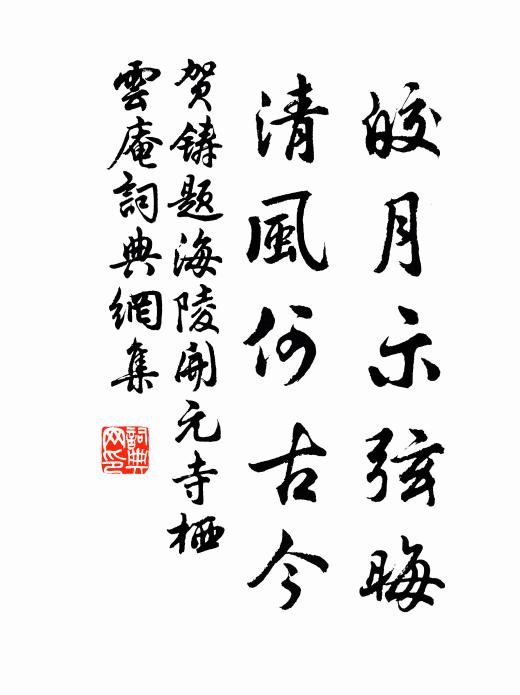 皎月示弦晦
清風何古今
贺鑄题海陵開元寺栖
雲庵詞典網集
詞典网印